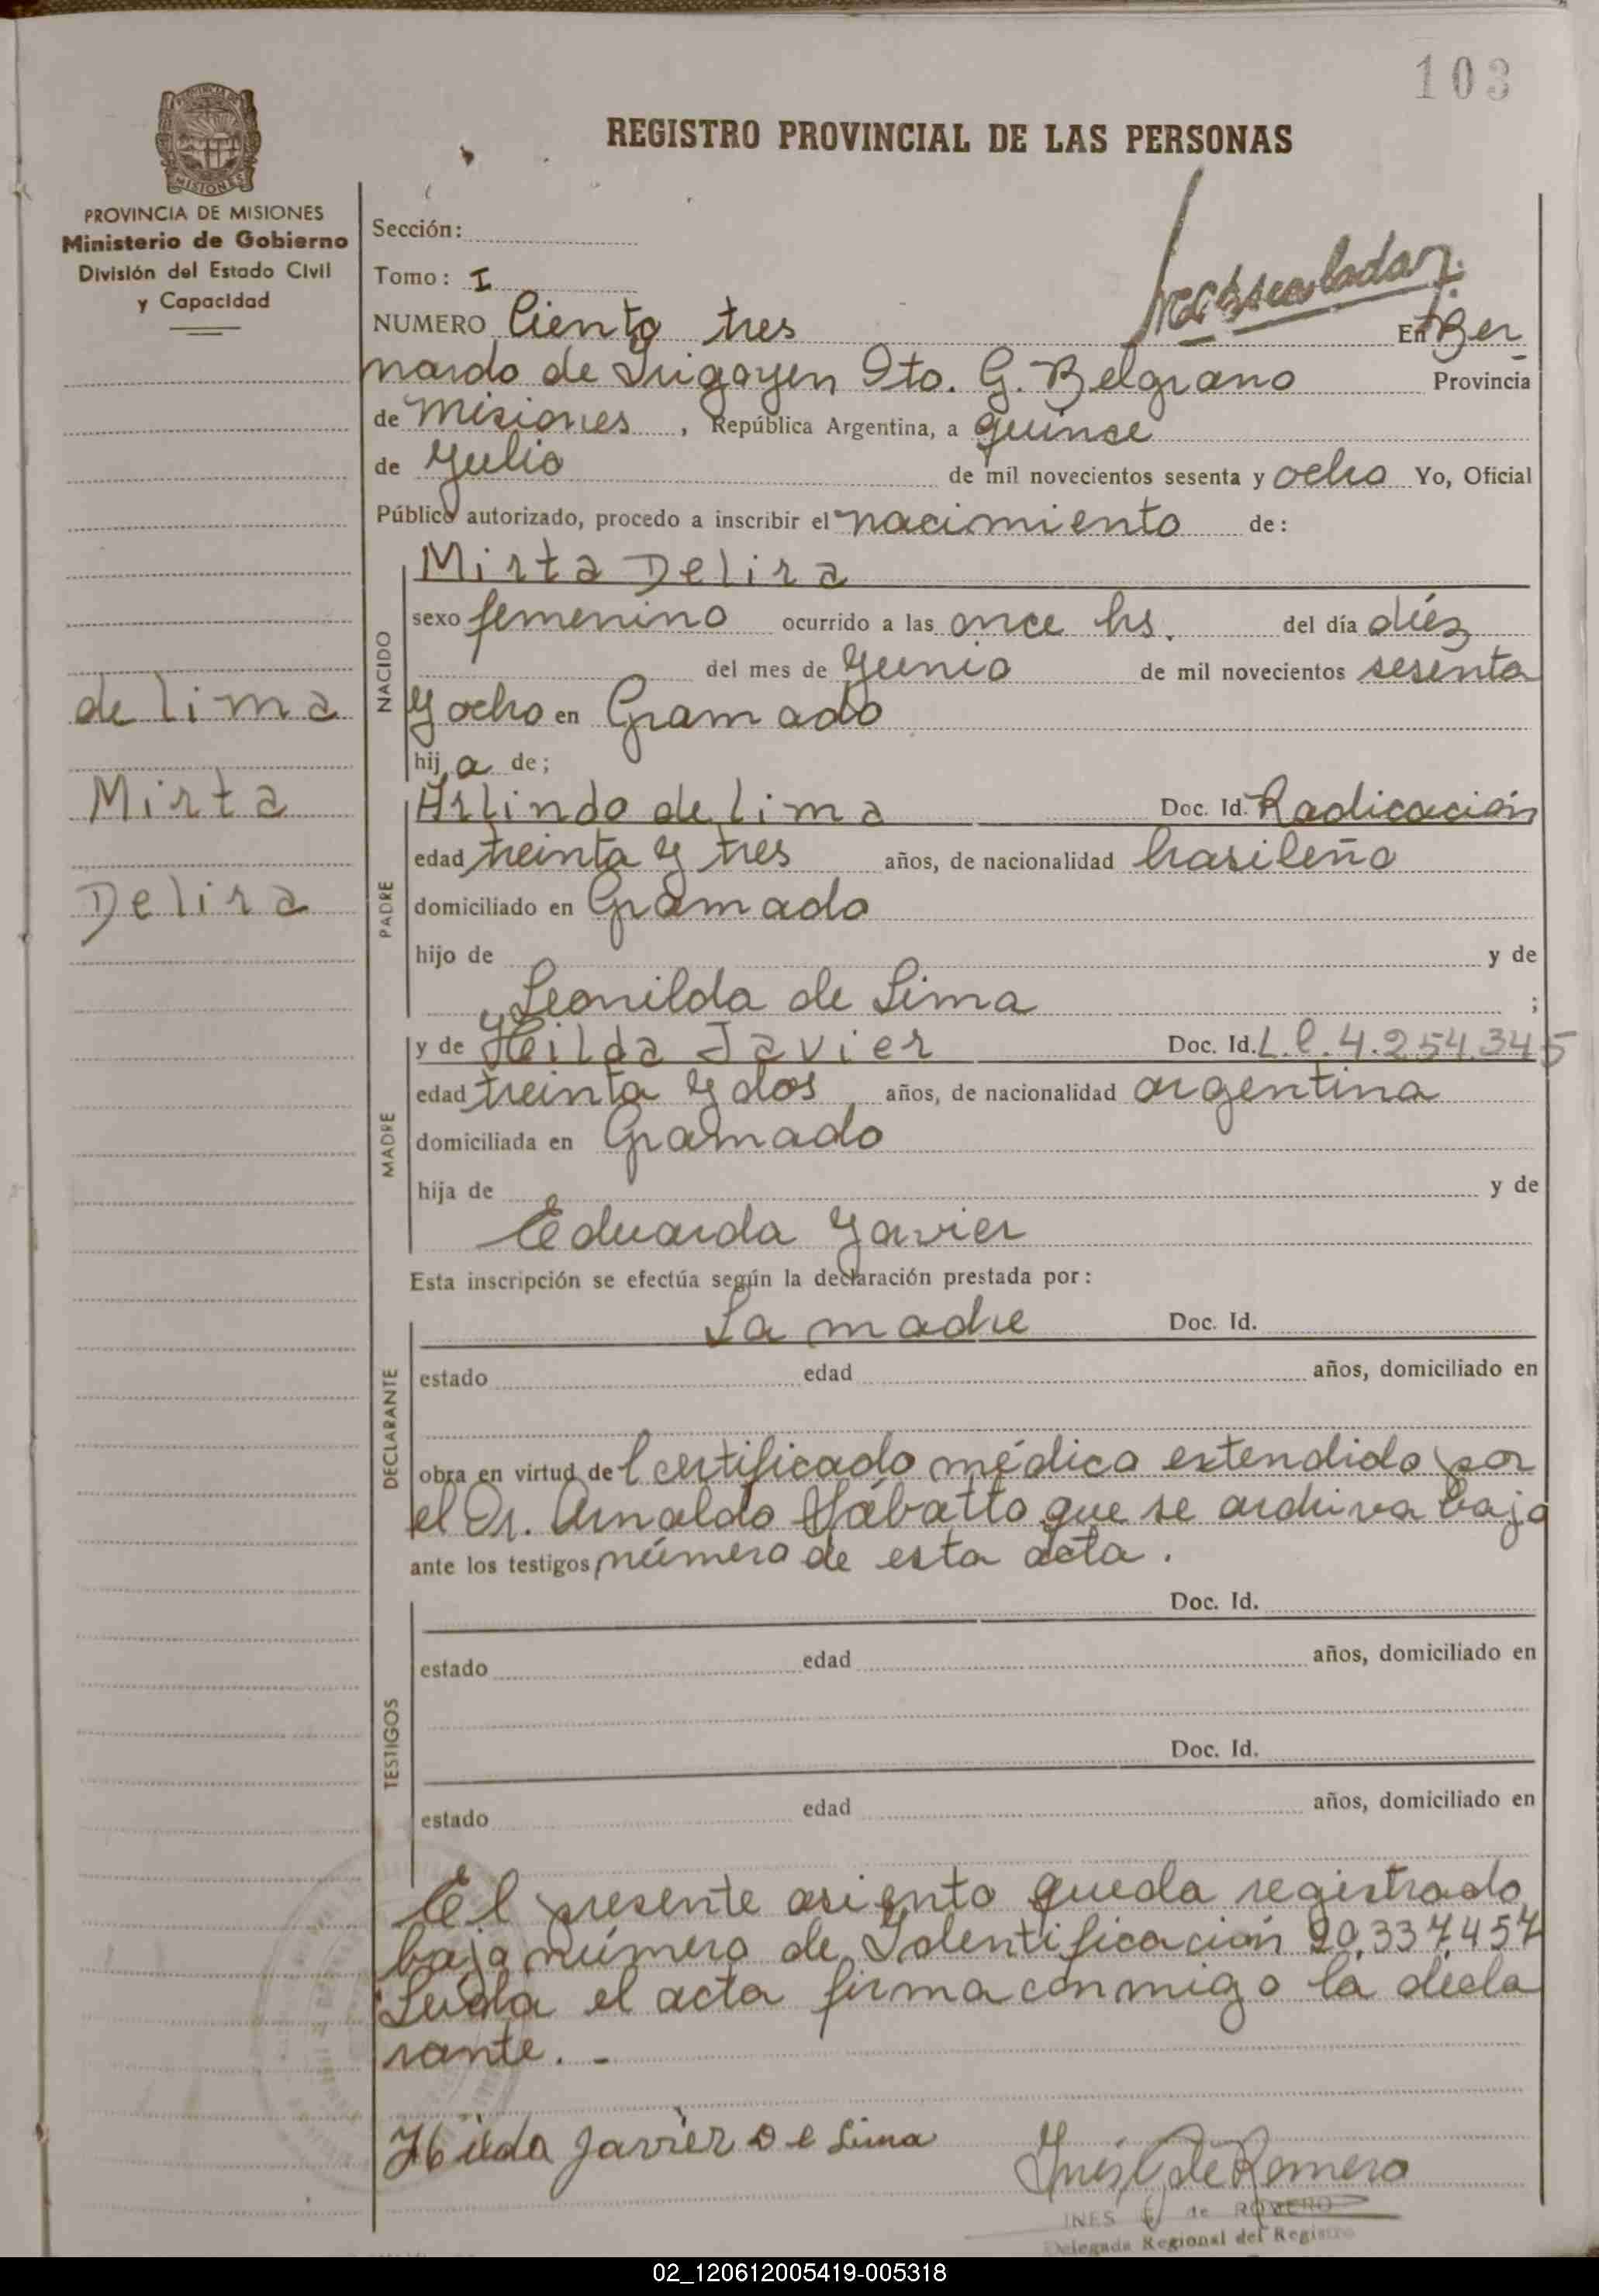 103
PROVINCIA DE
MISIONES
REGISTRO PROVINCIAL DE LAS PERSONAS
PROVINCIA DE MISIONES
Ministerio de Gobierno
División del Estado Civil
y Capacidad
de lima
Mirta
Delira
Sección:
Tomo: I
NUMERO Ciento tres En Ber
nardo de Irigoyen Dto. G. Belgrano Provincia
de Misiones, República Argentina, a quince
de Julio de mil novecientos sesenta y ocho Yo, Oficial
Público autorizado, procedo a inscribir el nacimiento de:
NACIDO
Mirta Delira
sexo femenino ocurrido a las once hs. del día diéz
del mes de Junio de mil novecientos sesenta
y ocho en Gramado
hija de;
PADRE
Arlindo de lima Doc. Id. Radicación
edad treinta y tres años, de nacionalidad brasileño
domiciliado en Gramado
hijo de y de
Leonilda de Lima ;
MADRE
y de Hilda Javier Doc. Id. L.C. 4.254.345
edad treinta y dos años, de nacionalidad argentina
domiciliada en Gramado
hija de y de
Eduarda Javier
Esta inscripción se efectúa según la declaración prestada por:
DECLARANTE
La madre Doc. Id.
estado edad años, domiciliado en
obra en virtud del certificado médico extendido por
el Dr. Arnaldo que se archiva bajo
ante los testigos número de esta acta.
TESTIGOS
Doc. Id.
estado edad años, domiciliado en
Doc. Id.
estado edad años, domiciliado en
El presente asiento queda registrado
bajo número de Identificación 20.337.457
Leída el acta firma conmigo la decla
rante. -
Hilda Javier De Lima
Inés de Romero
INES de ROMERO
Delegada Regional del Registro
02_120612005419-005318